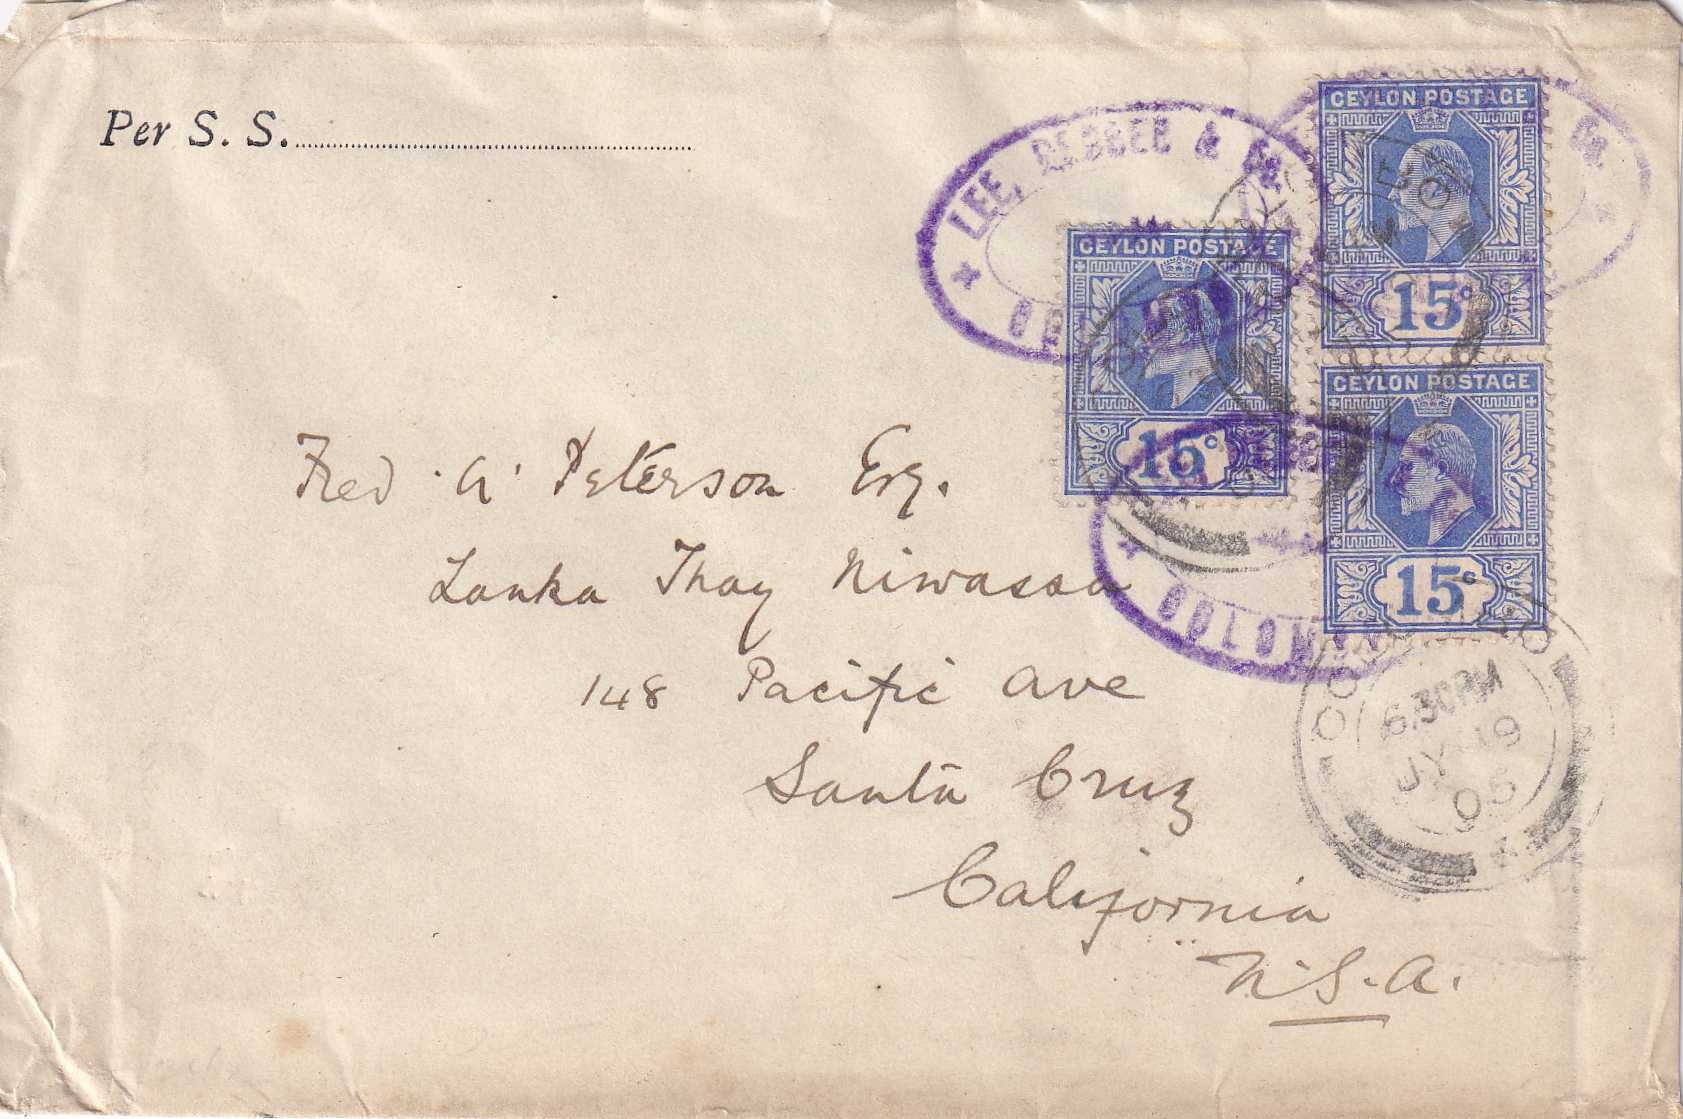 Per S. S.
LEE, HEDGES & Co.
COLOMBO
CEYLON POSTAGE
15c
CEYLON POSTAGE
15c
CEYLON POSTAGE
15c
COLOMBO
6.30PM
JY 19
05
Fred A Peterson Esq.
Lanka Thay Niwassa
148 Pacific Ave
Santa Cruz
California
U.S.A.